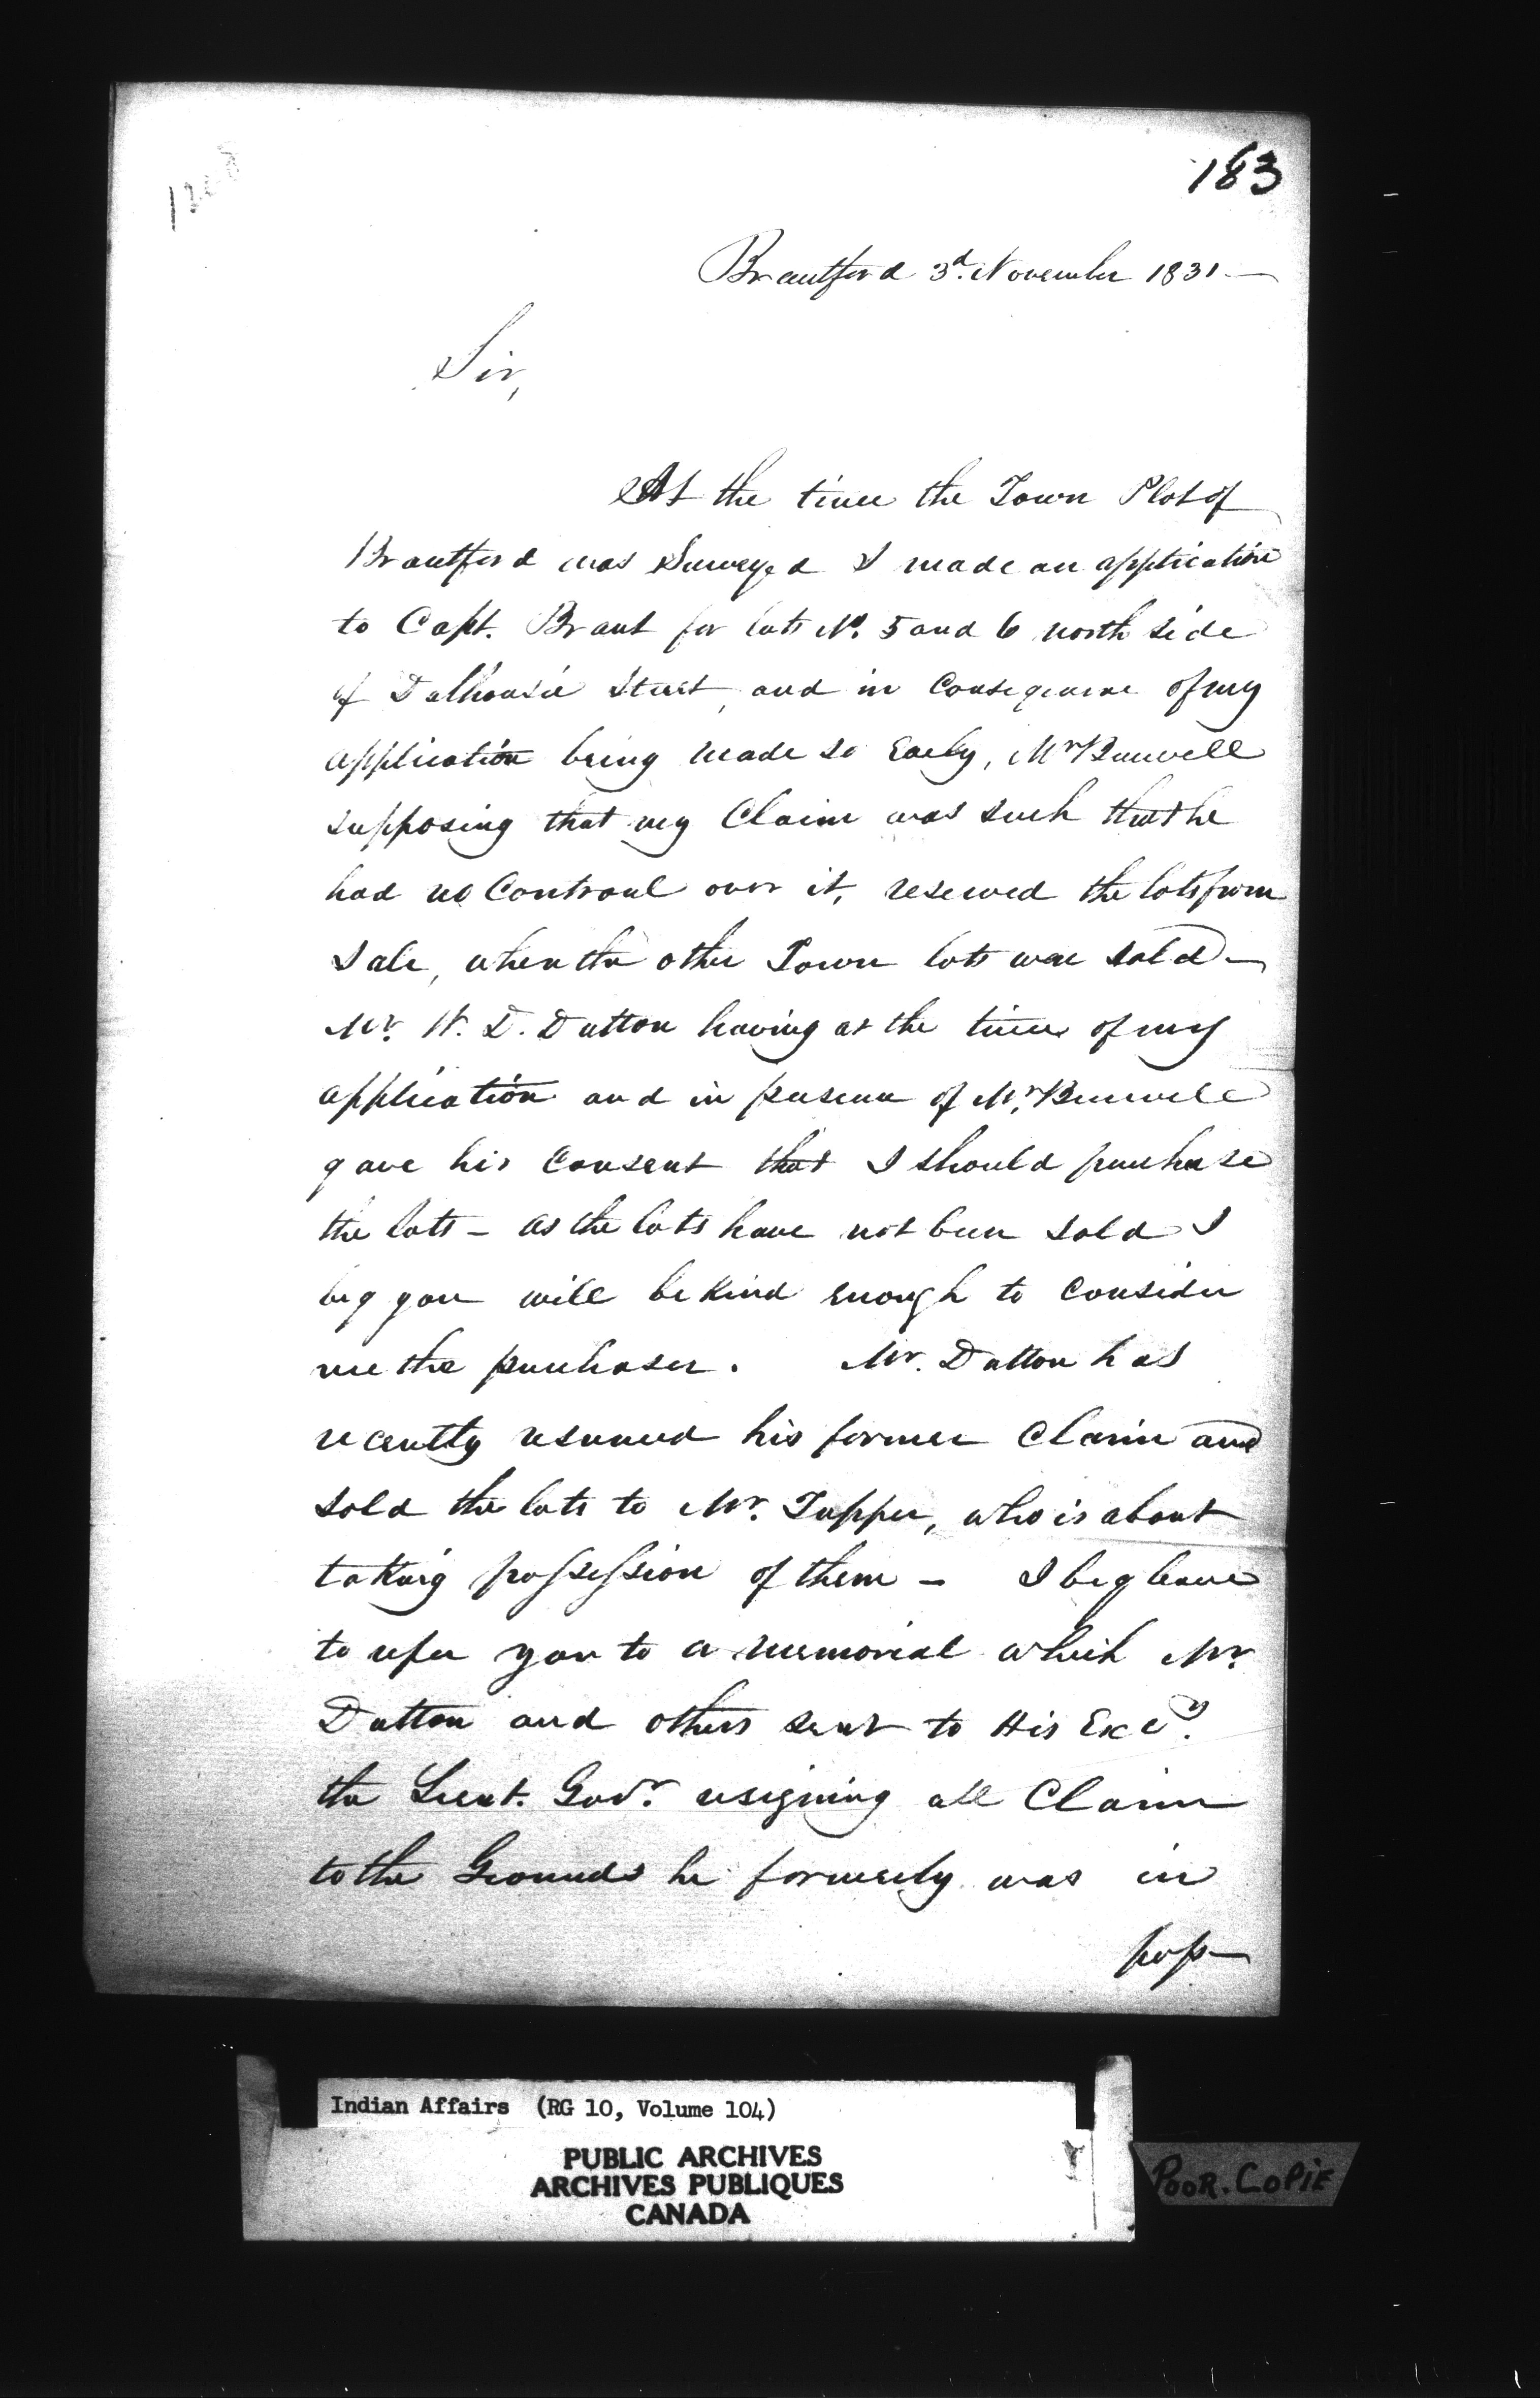 183
Brantford 3d. November 1831 —
Sir,
At the time the Town Plot of
Brantford was Surveyed I made an application
to Capt. Brant for lots No. 5 and 6 north side
of Dalhousie Street, and in Consequence of my
application being made so Early, Mr Burwell
supposing that my Claim was such that he
had no Controul over it, reserved the lots from
Sale, when the other Town lots were Sold —
Mr. W. D. Dutton having at the time of my
application and in presence of Mr. Burwell
gave his Consent that I should purchase
the lots – as the lots have not been Sold I
beg you will be Kind enough to Consider
me the purchaser. Mr. Dutton has
recently resumed his former Claim and
Sold the lots to Mr. Tupper, who is about
taking possession of them – I beg leave
to refer you to a memorial which Mr.
Dutton and others sent to His Excy.
the Lieut. Govr. resigning all Claim
to the Grounds he formerly was in
poss—
Indian Affairs (RG 10, Volume 104)
PUBLIC ARCHIVES
ARCHIVES PUBLIQUES
CANADA
POOR. COPIE